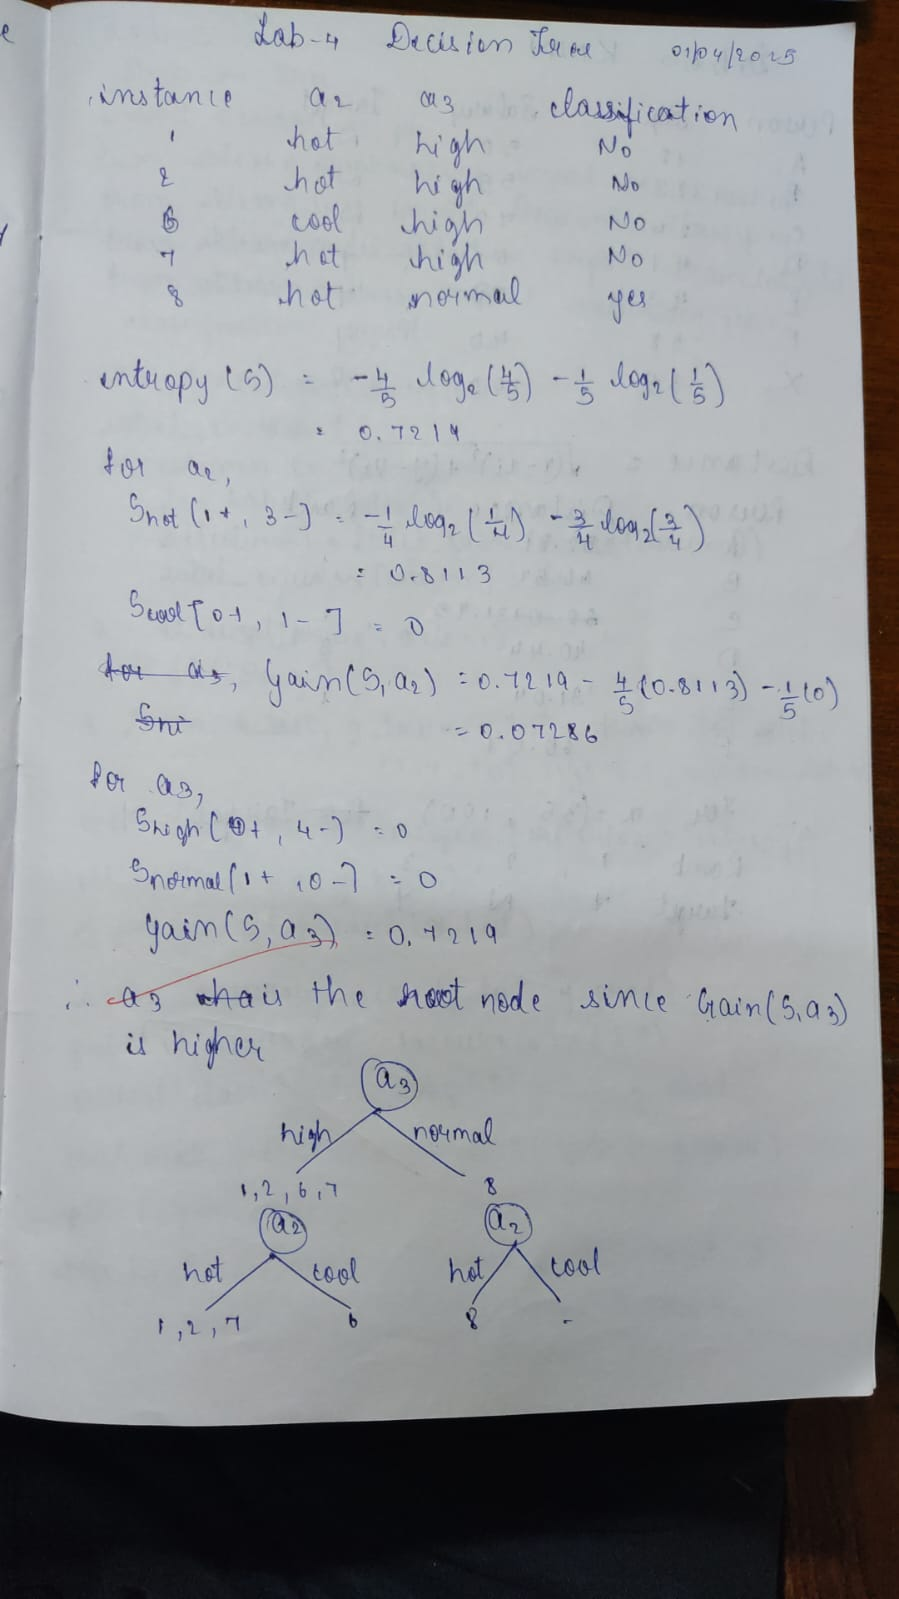 Lab-4 Decision Tree 01/04/2025
instance a2 a3 classification
1 hot high No
2 hot high No
6 cool high No
7 hot high No
8 hot normal yes
entropy (S) = -4/5 log2 (4/5) - 1/5 log2 (1/5)
= 0.7219
for a2,
Shot [1+, 3-] = -1/4 log2 (1/4) - 3/4 log2 (3/4)
= 0.8113
Scool [0+, 1-] = 0
for a3, Gain(S, a2) = 0.7219 - 4/5 (0.8113) - 1/5 (0)
= 0.07286
for a3,
Shigh [0+, 4-] = 0
Snormal [1+, 0-] = 0
gain(S, a3) = 0.7219
∴ a3 is the root node since Gain(S, a3)
is higher
a3
high normal
1, 2, 6, 7 8
a2 a2
hot cool hot cool
1, 2, 7 6 8 -